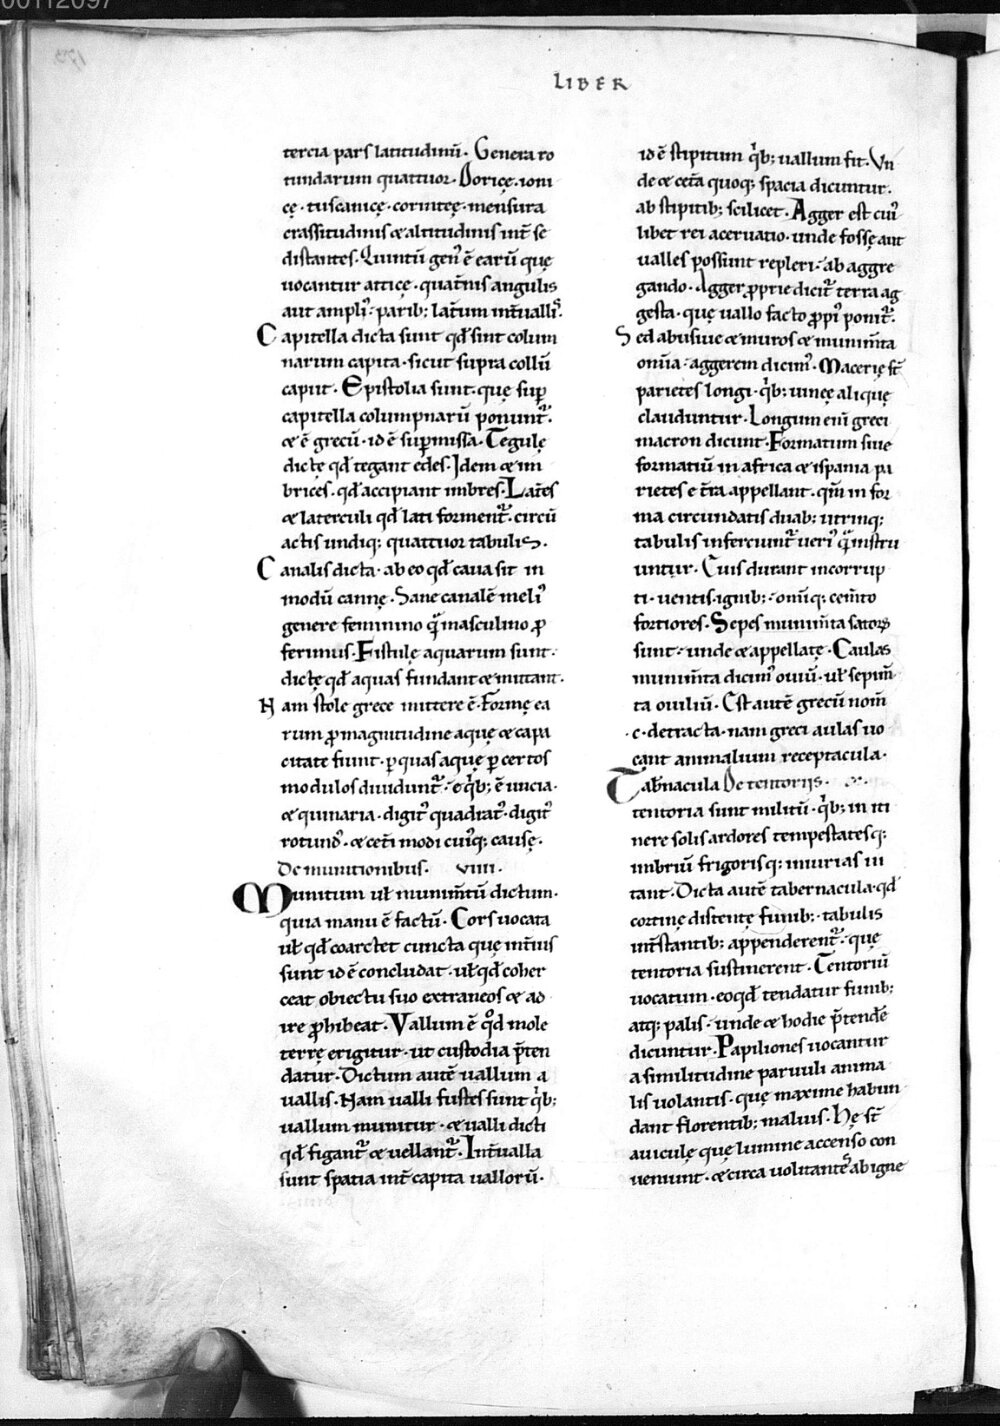 00112097
LIBER
tercia pars latitudinū. Genera ro
tundarum quattuor. Doricę. ioni
cę. tuscanicę. corinteę. mensura
crassitudinis & altitudinis int̄ se
distantes. Quintū gen᷒ ē earū quę
uocantur atticę. quat̄nis angulis
aut ampli᷒. parib; lat̄um int̄uallis.
Capitella dicta sunt qđ sint colum
narum capita. sicut supra collū
caput. Epistolia sunt. quę sup̄
capitella columpnarū ponunt᷑.
& ē grecū. id ē sup̄missa. Tegulę
dictę qđ tegant edes. Idem & im
brices. qđ accipiant imbres. Lat̄es
& laterculi qđ lati forment᷑. circū
actis undiq; quattuor tabulis.
Canalis dicta. ab eo qđ caua sit in
modū cannę. Sane canalē meli᷒
genere feminino q̄ masculino ꝓ
ferimus. Fistulę aquarum sunt.
dictę qđ aquas fundant & mittant.
Nam stole grece mittere ē. Formę ea
rum ꝓ magnitudine aquę & capa
citate fiunt. ꝑ quas aquę ꝑ certos
modulos diuidunt᷑. e q̇b; ē uncia.
& quinaria. digit᷒ quadrat᷒. digit᷒
rotund᷒. & cet̄i modi cui᷒q; causę.
De munitionibus. VIIII.
Munitum uł munim̄tū dictum.
quia manu ē factū. Cors uocata
uł qđ coarctet cuncta quę int̄ius
sunt id ē concludat. uł qđ coher
ceat obiectu suo extraneos & ad
ire ꝓhibeat. Vallum ē qđ mole
terrę erigitur. ut custodia p̄ten
datur. Dictum autē uallum a
uallis. Nam ualli fustes sunt q̇b;
uallum munitur. & ualli dicti
qđ figant᷑ & uellant᷑. Int̄ualla
sunt spatia int̄ capita uallorū.
id ē stipitum q̇b; uallum fit. Vn
de & cet̄a quoq; spacia dicuntur.
ab stipitib; scilicet. Agger est cui᷒
libet rei aceruatio. unde fossę aut
ualles possunt repleri. ab aggre
gando. Agger ꝓprie dicit᷑ terra ag
gesta. quę uallo facto ꝓpi᷒ ponit᷑.
Sed abusiue & muros & munim̄ta
omīa. aggerem dicim᷒. Macerię st̄
parietes longi. q̇b; uineę alique
clauduntur. Longum enī greci
macron dicunt. Formatum siue
formatiū in africa & ispania pa
rietes e t̄ra appellant. qm̄ in for
ma circundatis duab; utrinq;
tabulis inferciunt᷑ ueri᷒ q̄ instru
untur. Cuis durant incorrup
ti. uentis. ignib;. om̄iq; cem̄to
fortiores. Sepes munim̄ta satoꝝ
sunt. unde & appellatę. Caulas
munim̄ta dicim᷒ ouiū. uł sepim̄
ta ouiliū. Est autē grecū nom̄
.c. detracta. nam greci aulas uo
cant animalium receptacula.
Tab̄nacula De tentoriis. x.
tentoria sunt militū. q̇b; in iti
nere solis ardores tempestatesq;
imbriū frigorisq; iniurias ui
tant. Dicta autē tabernacula. qđ
cortinę distentę funib;. tabulis
int̄stantib; appenderent᷑. quę
tentoria sustinerent. Tentoriū
uocatum. eo qđ tendatur funib;
atq; palis. unde & hodie p̄tendē
dicuntur. Papiliones uocantur
a similitudine paruuli anima
lis uolantis. quę maxime habun
dant florentib; maluis. Hę st̄
auiculę quę lumine accenso con
ueniunt. & circa uolitantes ab igne